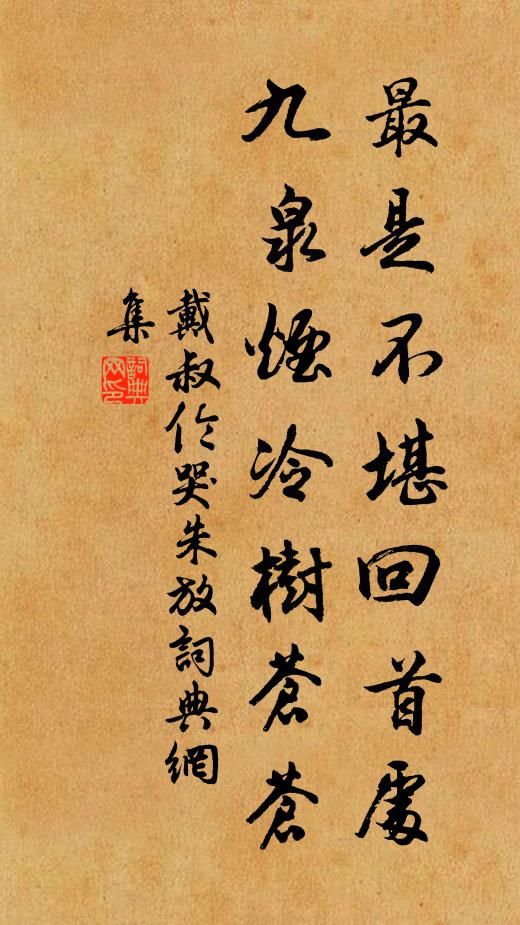 最是不堪回首處
九泉煙冷樹蒼蒼
戴叔伦哭朱放詞典網
集
詞典
网印